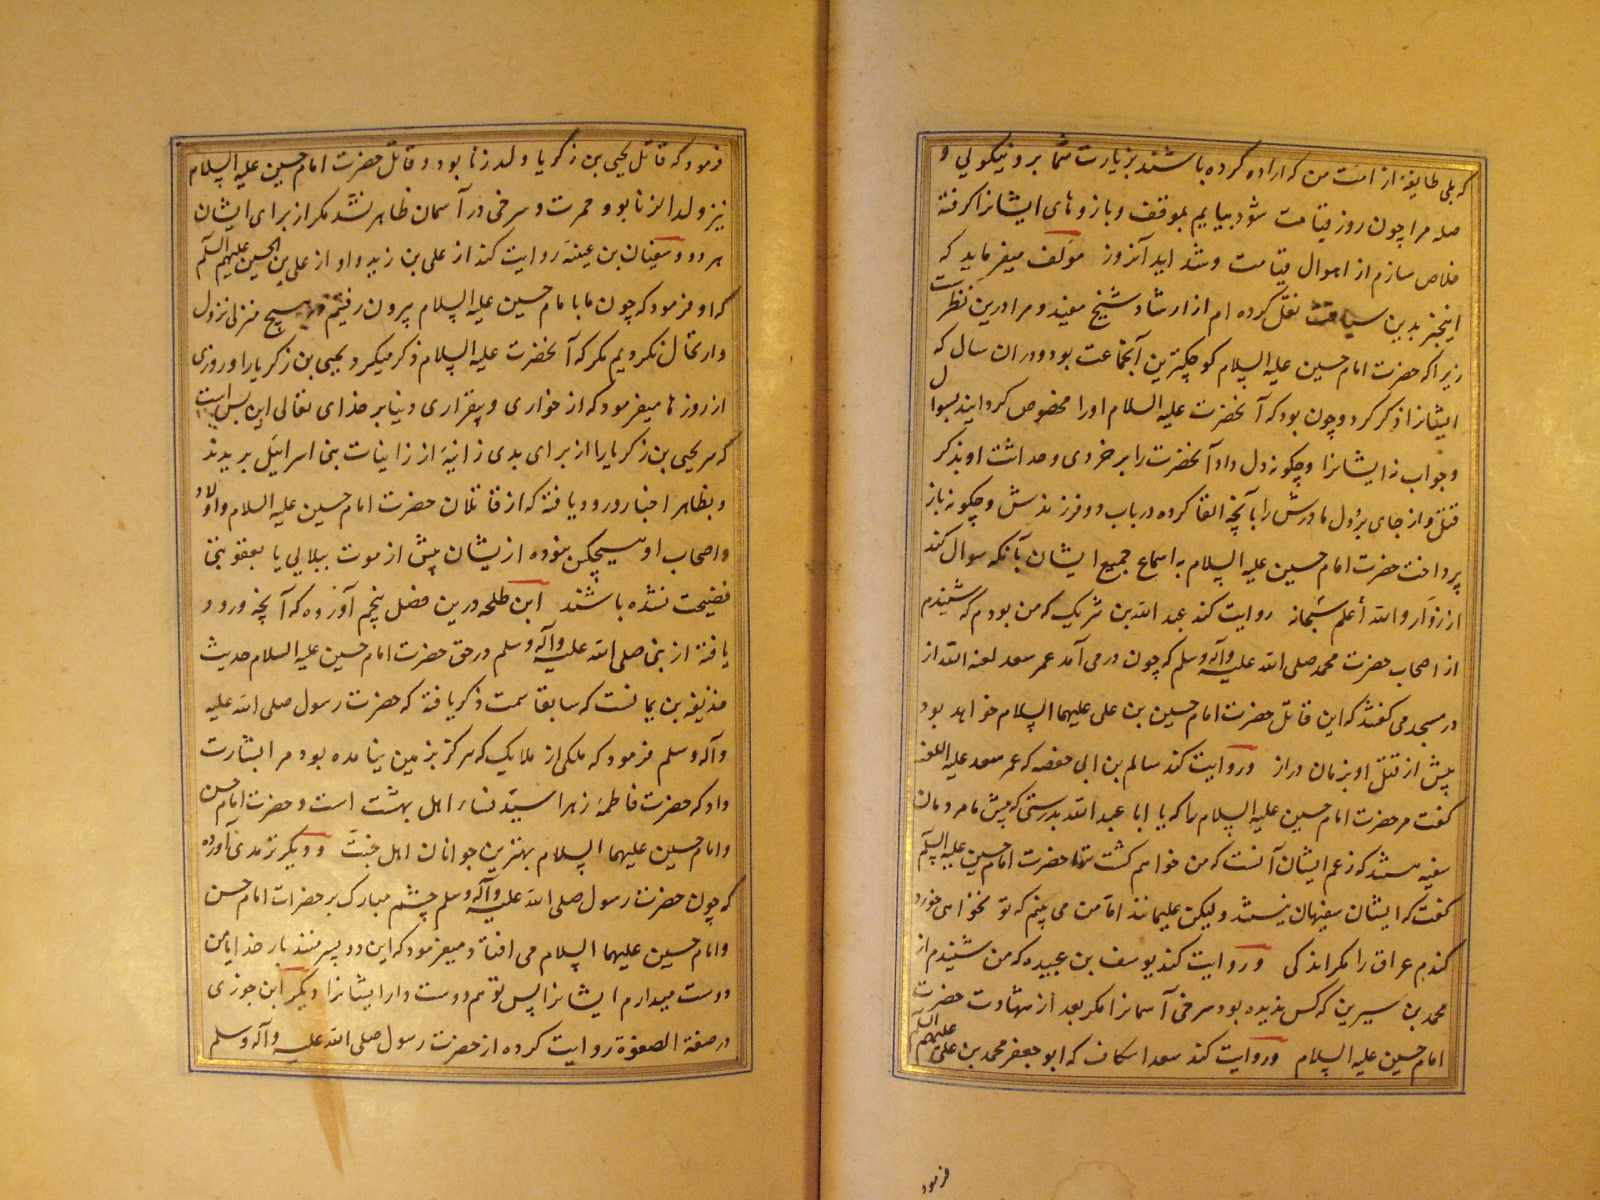 که بلی طایفهٔ از امت من که اراده کرده باشند بزیارت شما بر و نیکوئی و
صله مرا چون روز قیامت شود بیایم بموقف و بازوهای ایشانرا گرفته
خلاص سازم از اهوال قیامت و شداید آنروز مؤلف میفرماید که
اینچیز بدین سیاقت نقل کرده ام از ارشاد شیخ مفید و مرا درین نظرست
زیرا که حضرت امام حسین علیه السلام کوچکترین آنجماعت بود و در ان سال که
ایشانرا ذکر کرد و چون بود که آنحضرت علیه السلام اورا مخصوص گردانید بسوال
و جواب نه ایشانرا و چگونه دل داد آنحضرت را بر خردی و حداثت او بذکر
قتل و از جای بردل مادرش را بآنچه القا کرده در باب دو فرزندش و چگونه باز
پرداخت حضرت امام حسین علیه السلام به اسماع جمیع ایشان بآنکه سوال کند
از زوّار والله أعلم سبحانه روایت کند عبد الله بن شریک که من بودم که شنیدم
از اصحاب حضرت محمد صلی الله علیه وآله وسلم که چون در می آمد عمر سعد لعنه الله از
در مسجد می گفتند که این قاتل حضرت امام حسین بن علی علیهما السلام خواهد بود
پیش از قتل او بزمان دراز و روایت کند سالم بن ابی حفصه که عمر سعد علیه اللعنه
گفت مر حضرت امام حسین علیه السلام را که یا ابا عبد الله بدرستی که پیش ما مردمان
سفیه هستند که زعم ایشان آنست که من خواهم کشت ترا حضرت امام حسین علیه السلام
گفت که ایشان سفیهان نیستند ولیکن علیمانند اما من می بینم که تو نخواهی خورد
گندم عراق را مگر اندکی و روایت کند یوسف بن عبیده که من شنیدم از
محمد بن سیرین که کس ندیده بود سرخی آسمانرا مگر بعد از شهادت حضرت
امام حسین علیه السلام و روایت کند سعد اسکاف که ابو جعفر محمد بن علی علیهم السلام
فرمود
فرمود که قاتل یحیی بن زکریا ولد زنا بود و قاتل حضرت امام حسین علیه السلام
نیز ولد الزنا بود و حمرت و سرخی در آسمان ظاهر نشد مگر از برای ایشان
هر دو و سفیان بن عیینه روایت کند از علی بن زید و او از علی بن الحسین علیهم السلام
که او فرمود که چون ما با امام حسین علیه السلام بیرون رفتیم بهیچ منزل نزول
و ارتحال نکردیم مگر که آنحضرت علیه السلام ذکر میکرد یحیی بن زکریا را و روزی
از روزها میفرمود که از خواری و بیقراری دنیا بر خدای تعالی این بس است
که سر یحیی بن زکریا را از برای بدی زانیهٔ از زانیات بنی اسرائیل بریدند
و بظاهر اخبار ورود یافته که از قاتلان حضرت امام حسین علیه السلام و اولاد
و اصحاب او هیچکس نبوده از یشان پیش از موت ببلایی یا بعقوبتی
فضیحت نشده باشند ابن طلحه درین فصل پنجم آورده که آنچه ورود
یافته از نبی صلی الله علیه وآله وسلم در حق حضرت امام حسین علیه السلام حدیث
حذیفه بن یمانست که سابقا سمت ذکر یافته که حضرت رسول صلی الله علیه
وآله وسلم فرمود که ملکی از ملایک که هرگز بزمین نیامده بود مرا بشارت
داد که حضرت فاطمه زهرا سیده نساء اهل بهشت است و حضرت امام حسن
و امام حسین علیهما السلام بهترین جوانان اهل جنّت و دیگر ترمدی آورده
که چون حضرت رسول صلی الله علیه وآله وسلم چشم مبارک بر حضرات امام حسن
و امام حسین علیهما السلام می افتاد میفرمود که این دو پسر منند بار خدایا من
دوست میدارم ایشانرا پس تو هم دوست دار ایشانرا دیگر ابن جوزی
در صفة الصفوة روایت کرده از حضرت رسول صلی الله علیه وآله وسلم